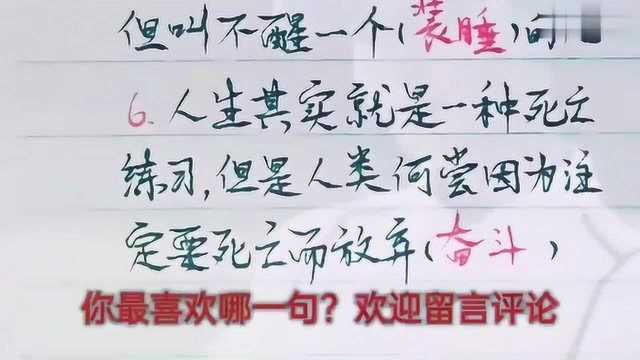 但叫不醒一个(装睡)的
6.人生其实就是一种死亡
练习,但是人类何尝因为注
定要死亡而放弃(奋斗)
你最喜欢哪一句？欢迎留言评论